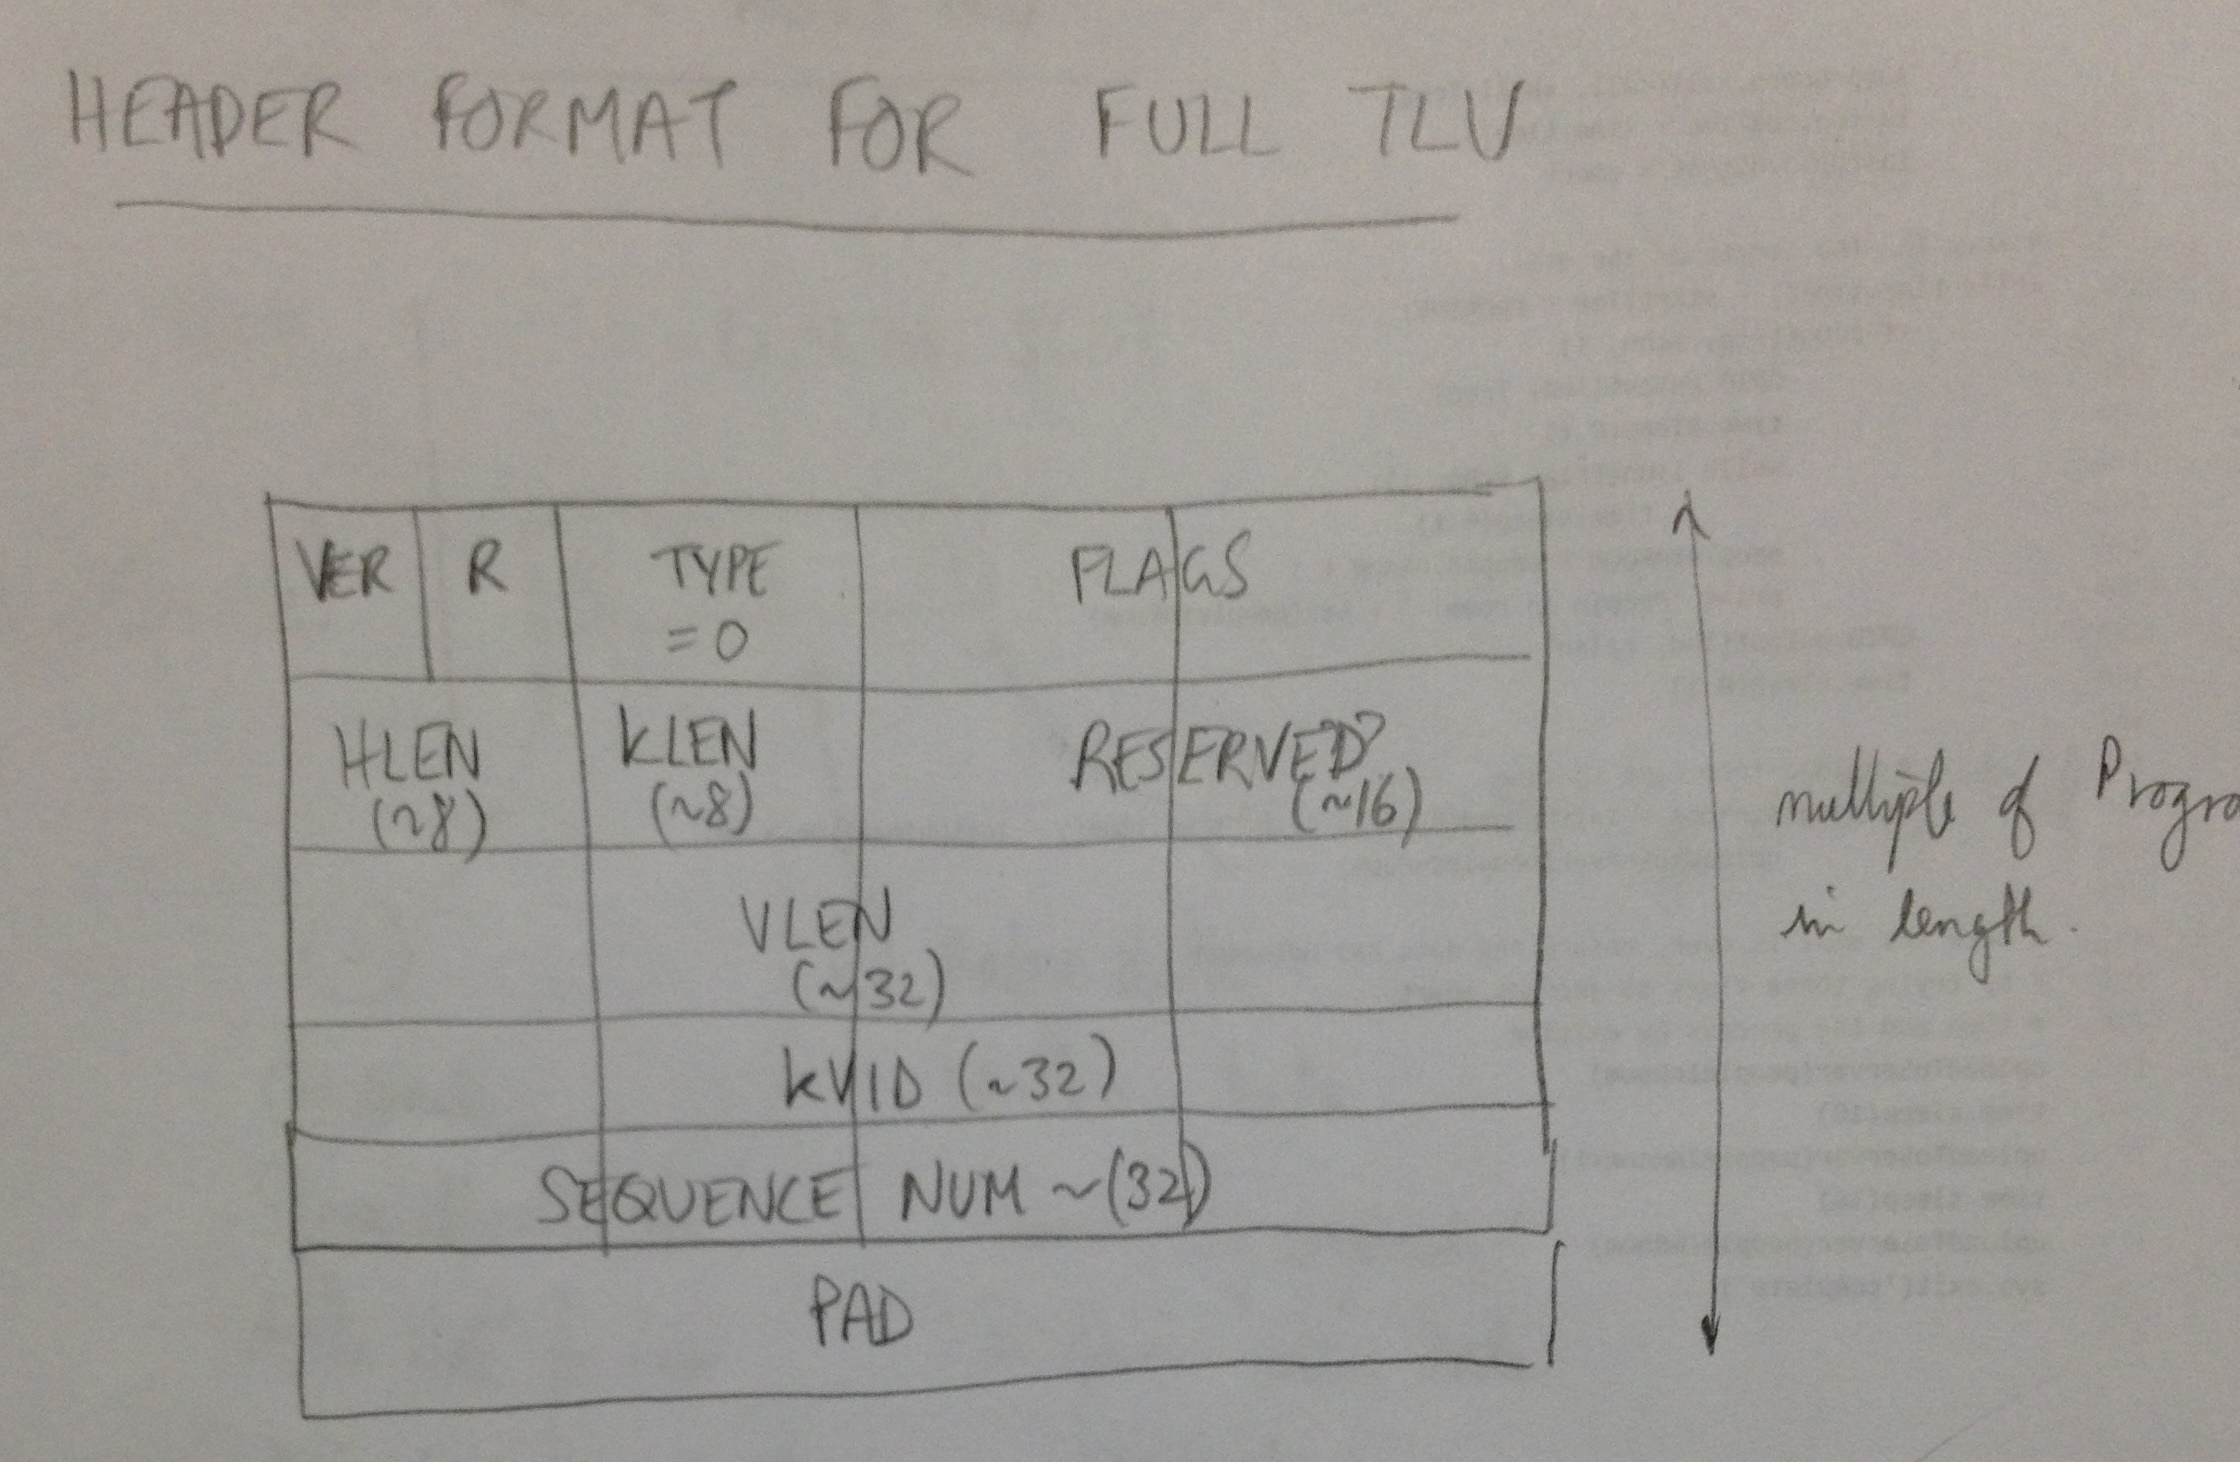 HEADER FORMAT FOR FULL TLV
VER R TYPE FLAGS
=0
HLEN KLEN RESERVED
(~8) (~8) (~16)
VLEN
(~32)
KVID (~32)
SEQUENCE NUM ~(32)
PAD
multiple of Progra
in length.